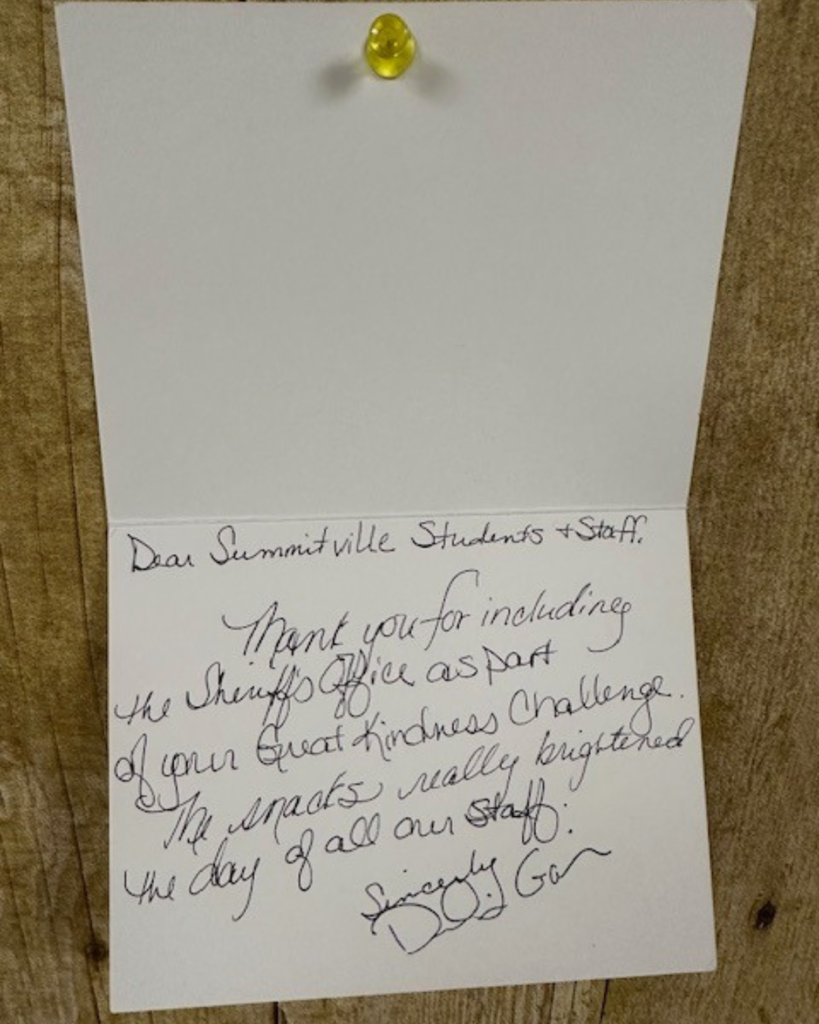 Dear Summitville Students + Staff.
Thank you for including
the Sheriff's Office as part
of your Great Kindness Challenge.
The snacks really brightened
the day of all our staff.
Sincerely